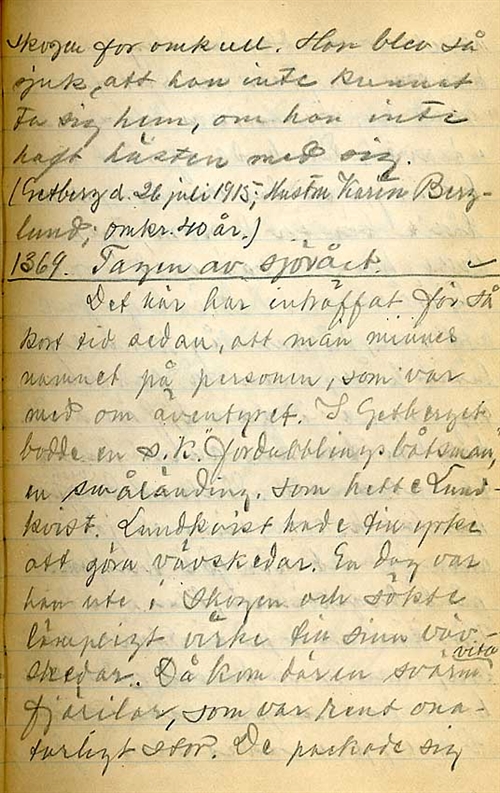 skogen för omkull. Hon blev så
sjuk, att hon inte kunnat
ta sig hem, om hon inte
haft hästen med sig.
(Getberg d. 26 juli 1915; Hustru Karin Berg-
lund; omkr. 40 år.)
1369. Tagen av sjörået.
Det här har inträffat för så
kort tid sedan, att man minnes
namnet på personen, som var
med om äventyret. I Getberget
bodde en s.k. "fördubblingsbåtsman",
en småländing, som hette Lund-
kvist. Lundkvist hade till yrke
att göra vävskedar. En dag var
han ute i skogen och sökte
lämpligt virke till sina väv-
skedar. Då kom där en svärm vita
fjärilar, som var rent ona-
turligt stor. De packade sig